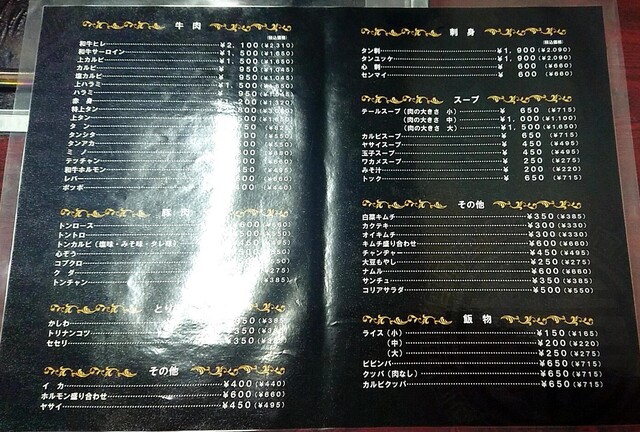 牛肉
(税込価格)
和牛ヒレ ¥2,100(¥2,310)
和牛サーロイン ¥1,500(¥1,650)
上カルビ ¥1,500(¥1,650)
カルビ ¥950(¥1,045)
塩カルビ ¥950(¥1,045)
上ハラミ ¥1,500(¥1,650)
ハラミ ¥950(¥1,045)
赤身
特上タン
上タン
タン
タンタ
タンアカ
ミノ
テッチャン
和牛ホルモン
レバー
ポッポ
豚肉
トンロース
トントロ
トンカルビ(塩味・みそ味・タレ味)
心ぞう
コブクロ
クダ
トンチャン
とり
かしわ
トリナンコツ
セセリ
その他
イカ ¥400(¥440)
ホルモン盛り合わせ ¥600(¥660)
ヤサイ ¥450(¥495)
刺身
(税込価格)
タン刺 ¥1,900(¥2,090)
タンユッケ ¥1,900(¥2,090)
心刺 ¥600(¥660)
センマイ ¥600(¥660)
スープ
テールスープ(肉の大きさ 小) ¥650(¥715)
(肉の大きさ 中) ¥1,000(¥1,100)
(肉の大きさ 大) ¥1,500(¥1,650)
カルビスープ ¥650(¥715)
ヤサイスープ ¥450(¥495)
玉子スープ ¥450(¥495)
ワカメスープ ¥250(¥275)
みそ汁 ¥200(¥220)
トック ¥650(¥715)
その他
白菜キムチ ¥350(¥385)
カクテキ ¥300(¥330)
オイキムチ ¥300(¥330)
キムチ盛り合わせ ¥600(¥660)
チャンヂャ ¥450(¥495)
大豆もやし ¥250(¥275)
ナムル ¥600(¥660)
サンチュ ¥350(¥385)
コリアサラダ ¥500(¥550)
飯物
ライス(小) ¥150(¥165)
(中) ¥200(¥220)
(大) ¥250(¥275)
ビビンバ ¥650(¥715)
クッパ(肉なし) ¥650(¥715)
カルビクッパ ¥650(¥715)